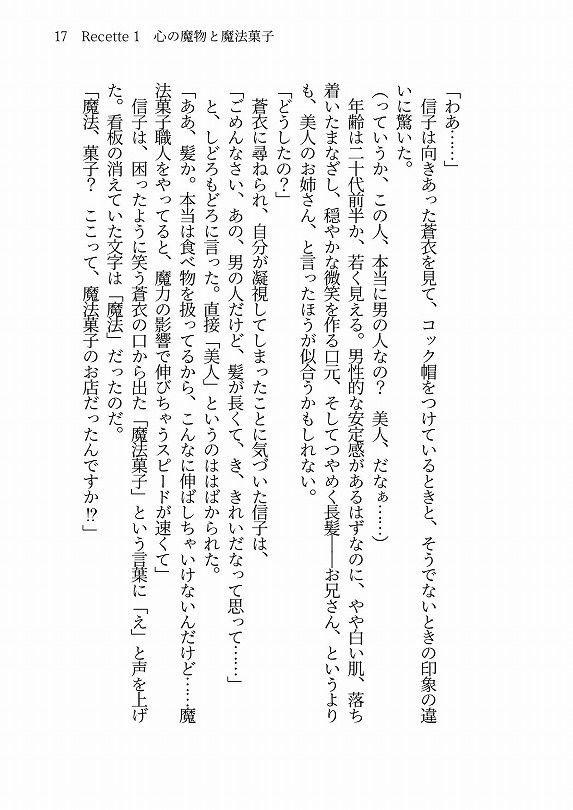 17　Recette 1　心の魔物と魔法菓子
「わあ……」
　信子は向きあった蒼衣を見て、コック帽をつけているときと、そうでないときの印象の違
いに驚いた。
（っていうか、この人、本当に男の人なの？　美人、だなぁ……）
　年齢は二十代前半か、若く見える。男性的な安定感があるはずなのに、やや白い肌、落ち
着いたまなざし、穏やかな微笑を作る口元、そしてつやめく長髪――お兄さん、というより
も、美人のお姉さん、と言ったほうが似合うかもしれない。
「どうしたの？」
　蒼衣に尋ねられ、自分が凝視してしまったことに気づいた信子は、
「ごめんなさい、あの、男の人だけど、髪が長くて、き、きれいだなって思って……」
　と、しどろもどろに言った。直接「美人」というのははばかられた。
「ああ、髪か。本当は食べ物を扱ってるから、こんなに伸ばしちゃいけないんだけど……魔
法菓子職人をやってると、魔力の影響で伸びちゃうスピードが速くて」
　信子は、困ったように笑う蒼衣の口から出た「魔法菓子」という言葉に「え」と声を上げ
た。看板の消えていた文字は「魔法」だったのだ。
「魔法、菓子？　ここって、魔法菓子のお店だったんですか⁉」